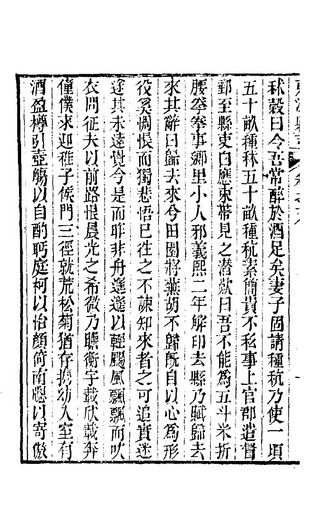 秫穀曰令吾常醉於酒足矣妻子固請種秔乃使一頃
五十畝種秫五十畝種秔素簡貴不私事上官郡遣督
郵至縣吏白應束帶見之潛歎曰吾不能爲五斗米折
腰拳拳事鄉里小人邪義熙二年解印去縣乃賦歸去
來其辭曰歸去來兮田園將蕪胡不歸旣自以心爲形
役奚惆悵而獨悲悟已往之不諫知來者之可追實迷
途其未遠覺今是而昨非舟遥遥以輕颺風飄飄而吹
衣問征夫以前路恨晨光之希微乃瞻衡宇載欣載奔
僮僕來迎稚子候門三徑就荒松菊猶存攜幼入室有
酒盈樽引壺觴以自酌眄庭柯以怡顏倚南牕以寄傲